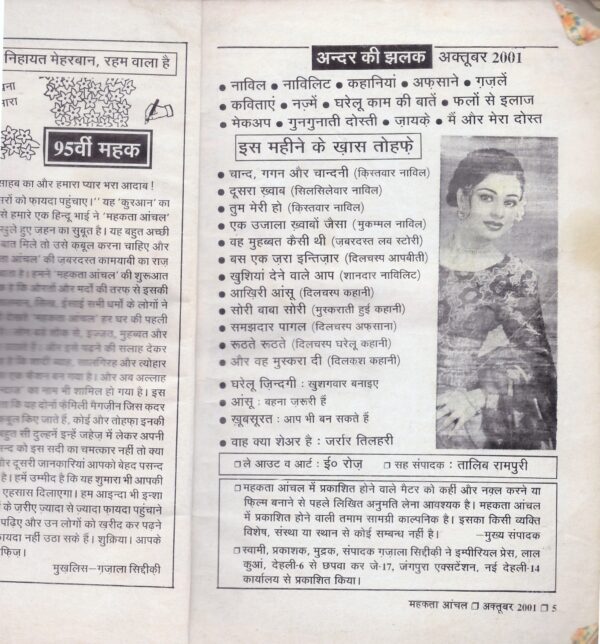 निहायत मेहरबान, रहम वाला है
95वीं महक
साहब का और हमारा प्यार भरा आदाब !
सरों को फायदा पहुंचाए।'' यह 'कुरआन' का
से हमारे एक हिन्दू भाई ने 'महकता आंचल'
खुले हुए जहन का सुबूत है। यह बहुत अच्छी
बात मिले तो उसे कबूल करना चाहिए और
आंचल' की ज़बरदस्त कामयाबी का राज़
हमने 'महकता आंचल' की शुरूआत
है कि औरतों और मर्दों की तरफ से इसकी
सिख, ईसाई सभी धर्मों के लोगों ने
'महकता आंचल' हर घर की पहली
इज्ज़त, मुहब्बत और
पढ़ने की सलाह देकर
सालगिरह और त्योहार
बन गया है। और अब अल्लाह
का नाम भी शामिल हो गया है। इस
कि यह दोनों फेमिली मैगजीन जिस कदर
कबूल किए जाते हैं, कोई और तोहफा इनकी
बहुत सी दुल्हनें इन्हें जहेज़ में लेकर अपनी
को इस सदी का चमत्कार नहीं तो क्या
और दूसरी जानकारियां आपको बेहद पसन्द
है। हमें उम्मीद है कि यह शुमारा भी आपकी
एहसास दिलाएगा। हम आइन्दा भी इन्शा
के जरीए ज्यादा से ज्यादा फायदा पहुंचाने
पढ़िए और उन लोगों को खरीद कर पढ़ने
फायदा नहीं उठा सके हैं। शुक्रिया। आपके
हाफिज।
मुख़लिस–गज़ाला सिद्दीकी
अन्दर की झलक अक्तूबर 2001
● नाविल ● नाविलिट ● कहानियां ● अफसाने ● ग़ज़लें
● कविताएं ● नज़्में ● घरेलू काम की बातें ● फलों से इलाज
● मेकअप ● गुनगुनाती दोस्ती ● ज़ायके ● मैं और मेरा दोस्त
इस महीने के ख़ास तोहफ़े
● चान्द, गगन और चान्दनी (किस्तवार नाविल)
● दूसरा ख़्वाब (सिलसिलेवार नाविल)
● तुम मेरी हो (किस्तवार नाविल)
● एक उजाला ख़्वाबों जैसा (मुकम्मल नाविल)
● वह मुहब्बत कैसी थी (ज़बरदस्त लव स्टोरी)
● बस एक ज़रा इन्तिज़ार (दिलचस्प आपबीती)
● खुशियां देने वाले आप (शानदार नाविलिट)
● आख़िरी आंसू (दिलचस्प कहानी)
● सोरी बाबा सोरी (मुस्कराती हुई कहानी)
● समझदार पागल (दिलचस्प अफसाना)
● रूठते रूठते (दिलचस्प घरेलू कहानी)
● और वह मुस्करा दी (दिलकश कहानी)
● घरेलू ज़िन्दगी : खुशगवार बनाइए
● आंसू : बहना ज़रूरी हैं
● ख़ूबसूरत : आप भी बन सकते हैं
● वाह क्या शेअर है : जर्रार तिलहरी
□ ले आउट व आर्ट : ई० रोज़ □ सह संपादक : तालिब रामपुरी
□ महकता आंचल में प्रकाशित होने वाले मैटर को कहीं और नक्ल करने या
फिल्म बनाने से पहले लिखित अनुमति लेना आवश्यक है। महकता आंचल
में प्रकाशित होने वाली तमाम सामग्री काल्पनिक है। इसका किसी व्यक्ति
विशेष, संस्था या स्थान से कोई सम्बन्ध नहीं है। –मुख्य संपादक
□ स्वामी, प्रकाशक, मुद्रक, संपादक गज़ाला सिद्दीकी ने इम्पीरियल प्रेस, लाल
कुआं, देहली-6 से छपवा कर जे-17, जंगपुरा एक्सटेंशन, नई देहली-14
कार्यालय से प्रकाशित किया।
महकता आंचल □ अक्तूबर 2001 □ 5